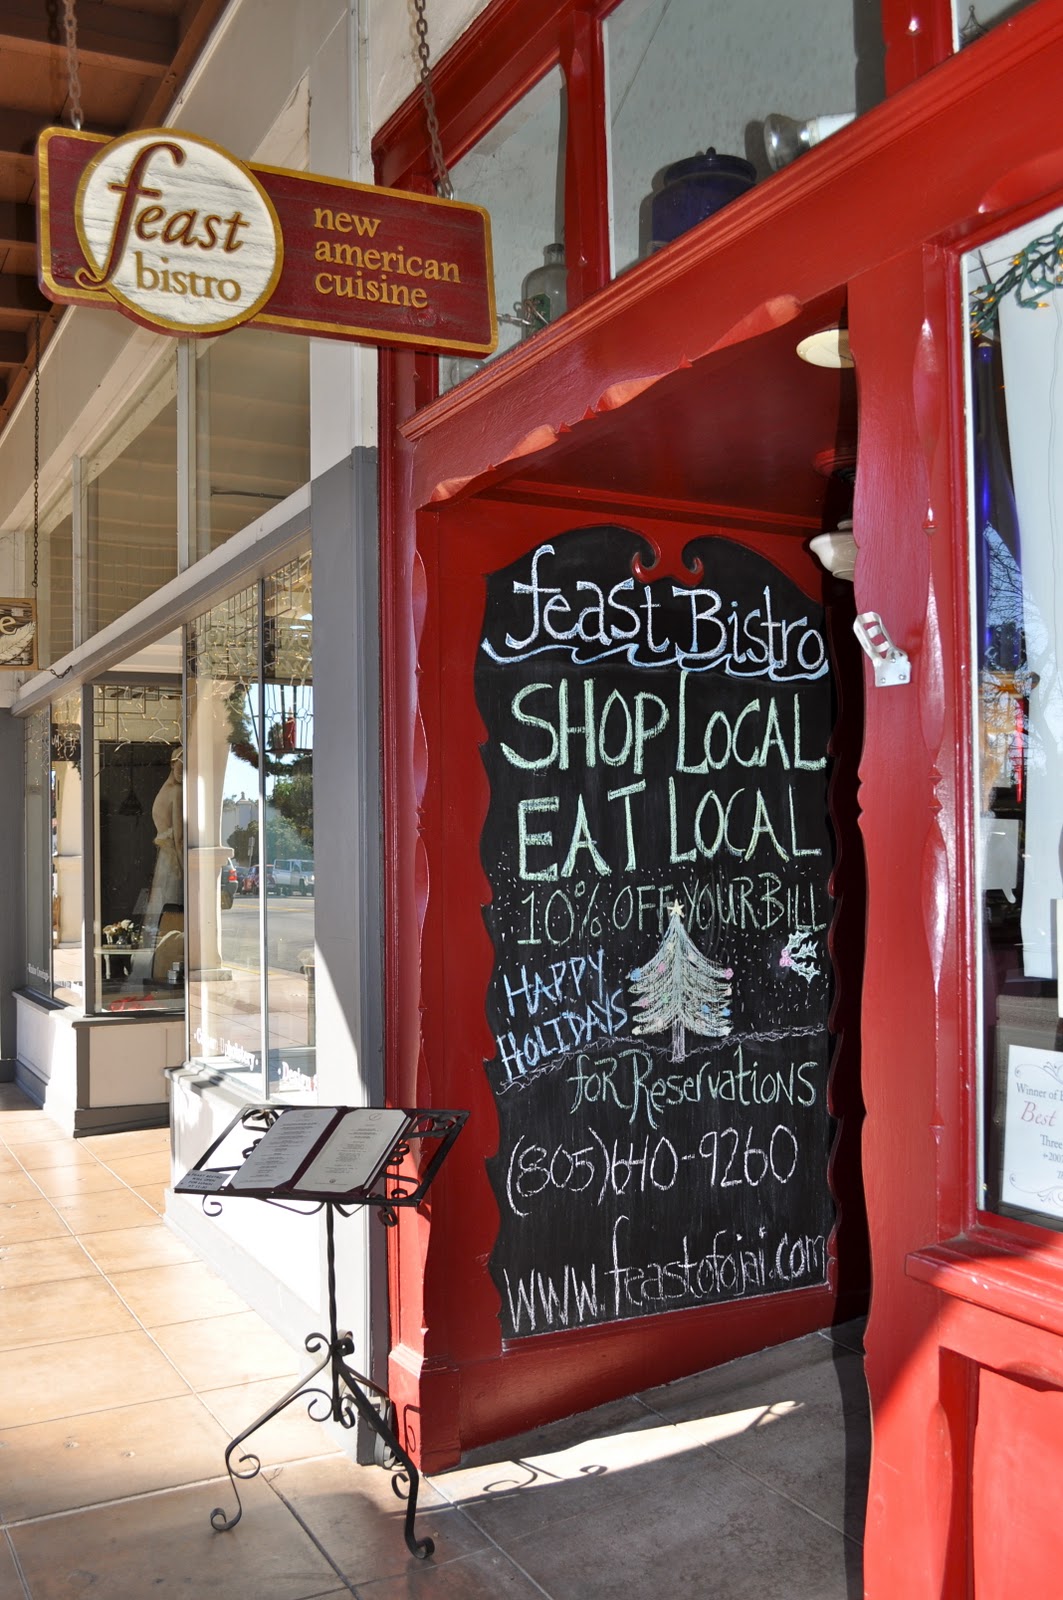 feast
bistro
new
american
cuisine
feast Bistro
SHOP LOCAL
EAT LOCAL
10% OFF YOUR BILL
HAPPY
HOLIDAYS
for Reservations
(805)640-9260
www.feastofojai.com
Winner of
Best
Three